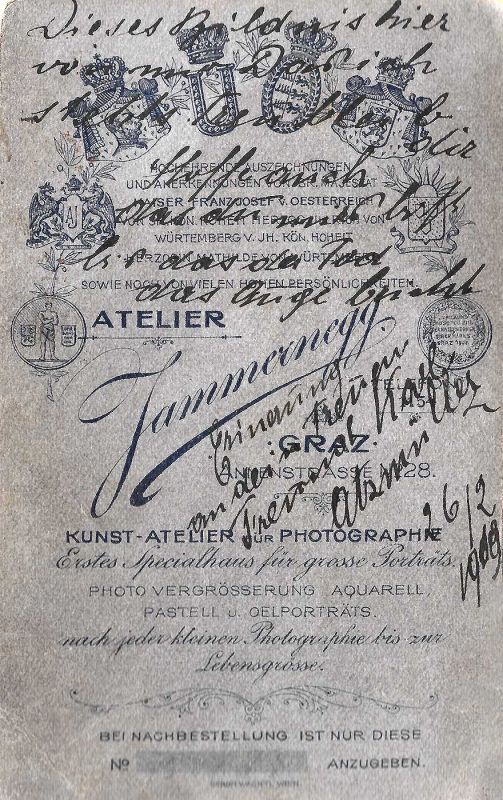 Dieses Bildnis hier
von mir Das ich
stets treu bleib
dir
HOCHEHRENDE AUSZEICHNUNGEN
UND ANERKENNUNGEN VON SR. MAJESTÄT
KAISER FRANZ JOSEF V. OESTERREICH
WÜRTEMBERG V. JH. KÖN. HOHEIT
HERZOGIN MATHILDE VON WÜRTEMBERG
SOWIE NOCH VON VIELEN HOHEN PERSÖNLICHKEITEN.
bis das der Tod
das Auge bricht
AJ
ATELIER
Jammernegg.
GRAZ
ANNENSTRASSE 28.
Erinerung
an deinen Treuen
Freund Karl
26/2
1919
KUNST-ATELIER FÜR PHOTOGRAPHIE
Erstes Specialhaus für grosse Porträts.
PHOTO VERGRÖSSERUNG AQUARELL,
PASTELL U. OELPORTRÄTS.
nach jeder kleinen Photographie bis zur
Lebensgrösse.
BEI NACHBESTELLUNG IST NUR DIESE
No ANZUGEBEN.